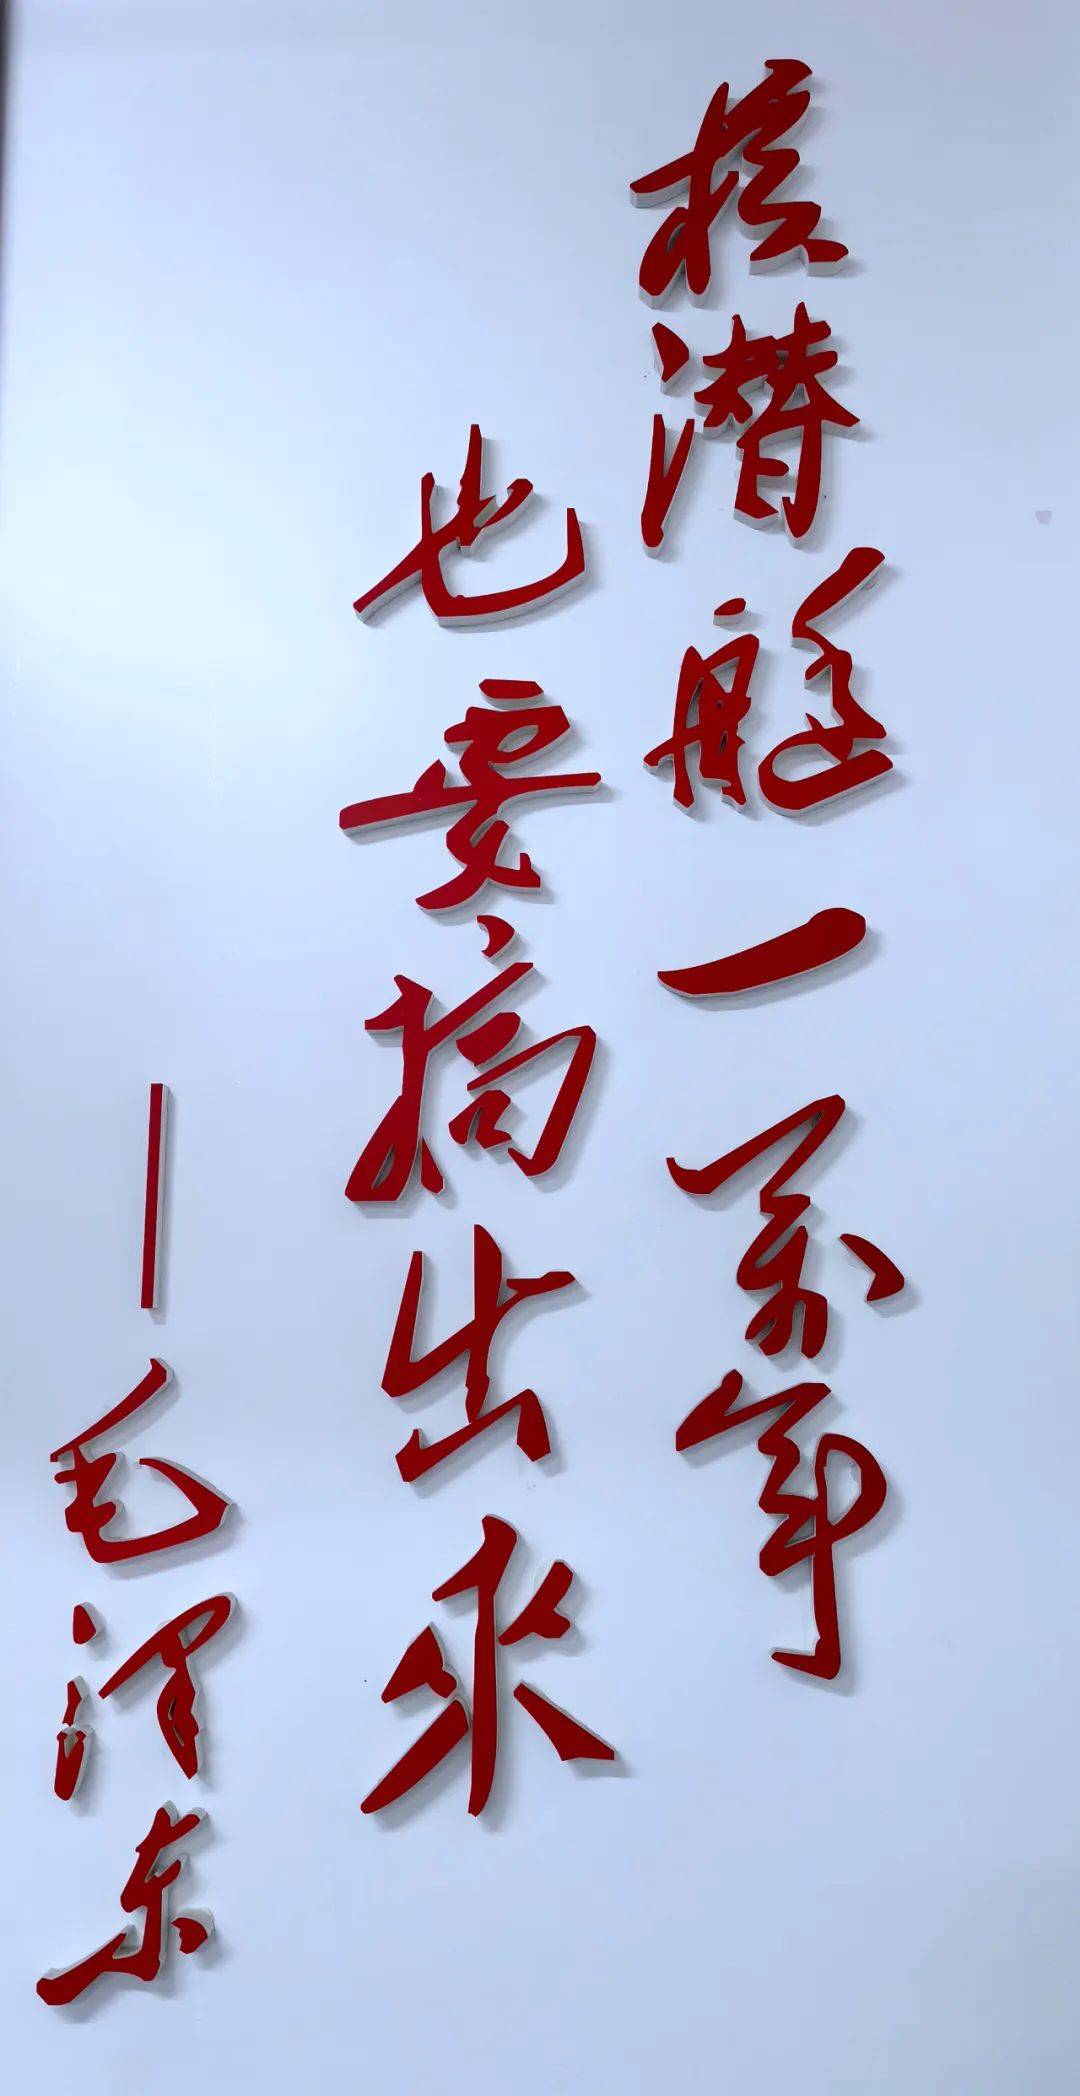 核潜艇一万年
也要搞出来
—毛泽东